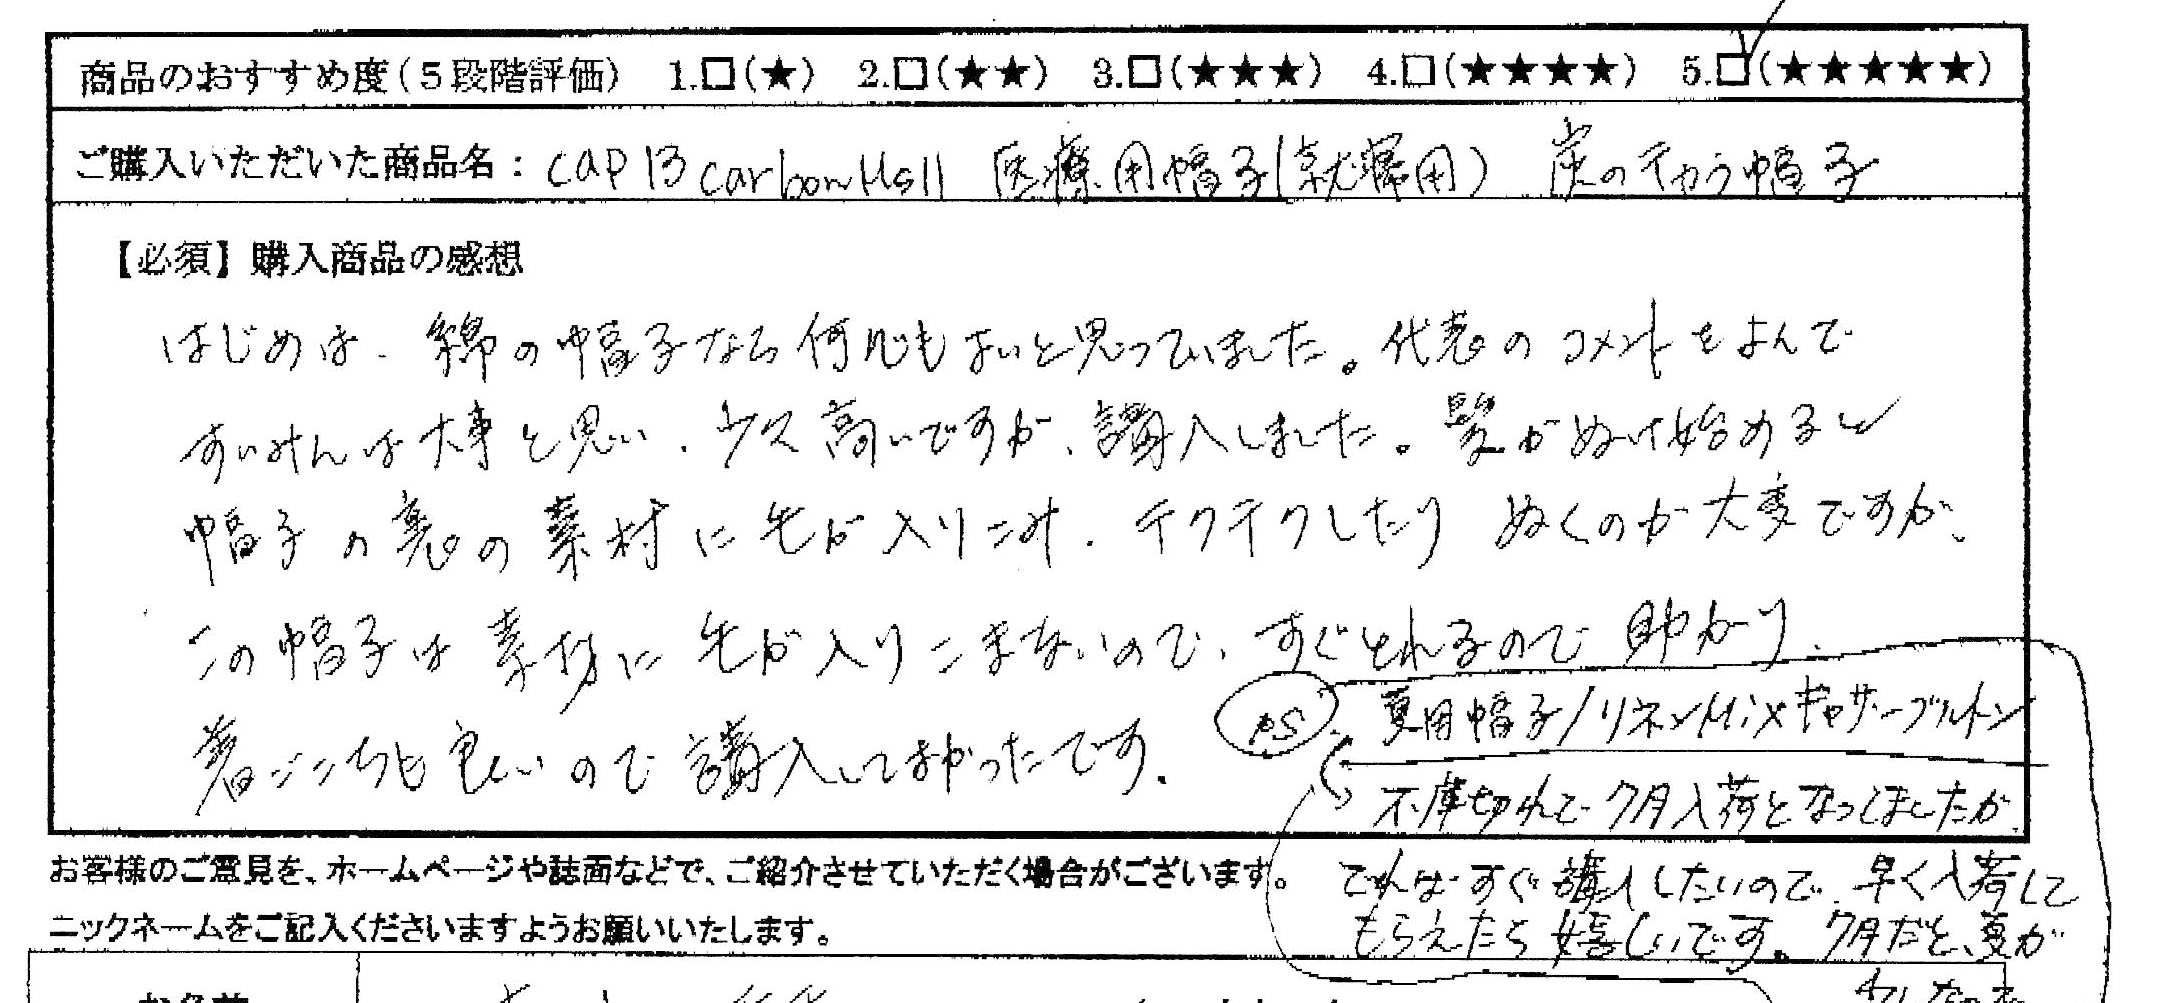 商品のおすすめ度(5段階評価) 1.□(★) 2.□(★★) 3.□(★★★) 4.□(★★★★) 5.□(★★★★★)
ご購入いただいた商品名: cap 13 carbon 医療用帽子(就寝用) 炭のチカラ帽子
【必須】購入商品の感想
はじめは、綿の帽子なら何でもよいと思っていました。代表のコメントをよんで
すいみんは大事と思い、少々高いですが、購入しました。髪がぬけ始めると
帽子の裏の素材に毛が入りこみ、チクチクしたり ぬくのが大変ですが、
この帽子は素材に毛が入りこまないので、すぐとれるので助かり、
着ごこちも良いので購入してよかったです。
PS. 夏用帽子/リネンMixギャザーブルトン
在庫切れで7月入荷となってましたが、
お客様のご意見を、ホームページや誌面などで、ご紹介させていただく場合がございます。
ニックネームをご記入くださいますようお願いいたします。
できればすぐ購入したいので、早く入荷して
もらえたら嬉しいです。7月だと、夏が
お名前